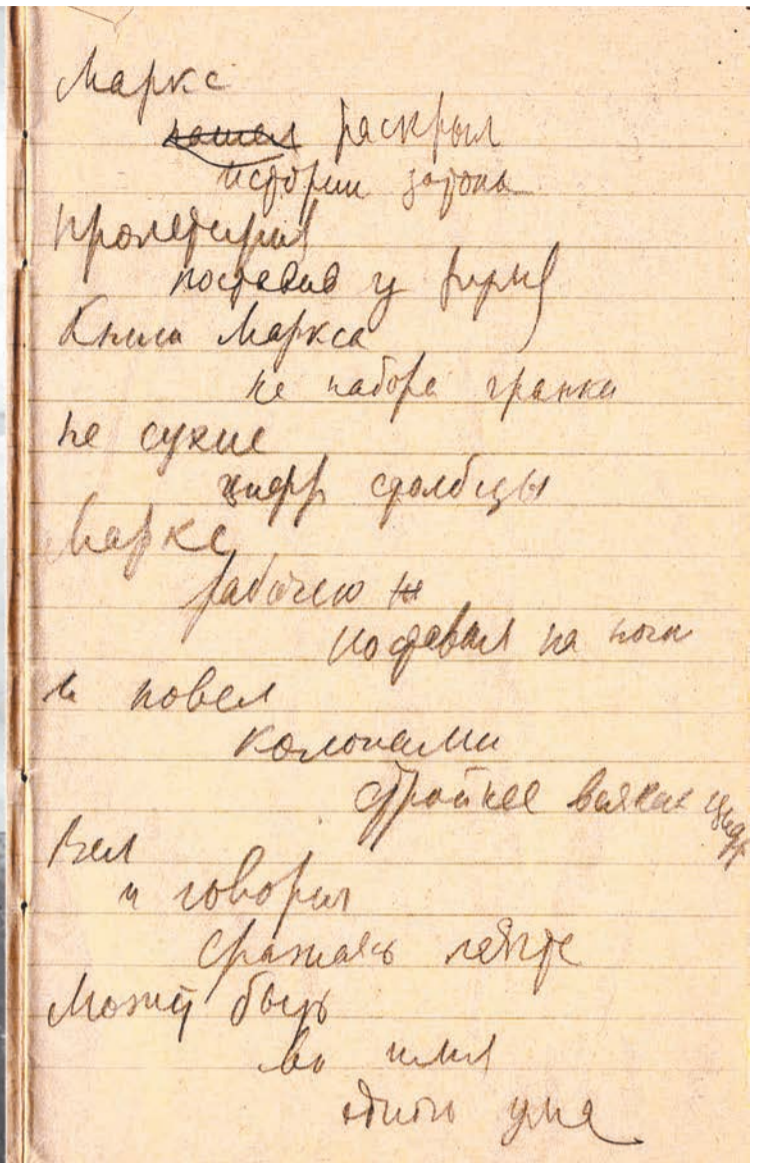 Маркс
нашел раскрыл
истории законы
пролетариат
поставив у руля
Книги Маркса
не набора гранки
не сухие
цифр столбцы
Маркс
рабочего
поставил на ноги
и повел
колонами
стройнее всяких цифр
Вел
и говорил
сражаясь лягте
может быть
во имя
одного ума